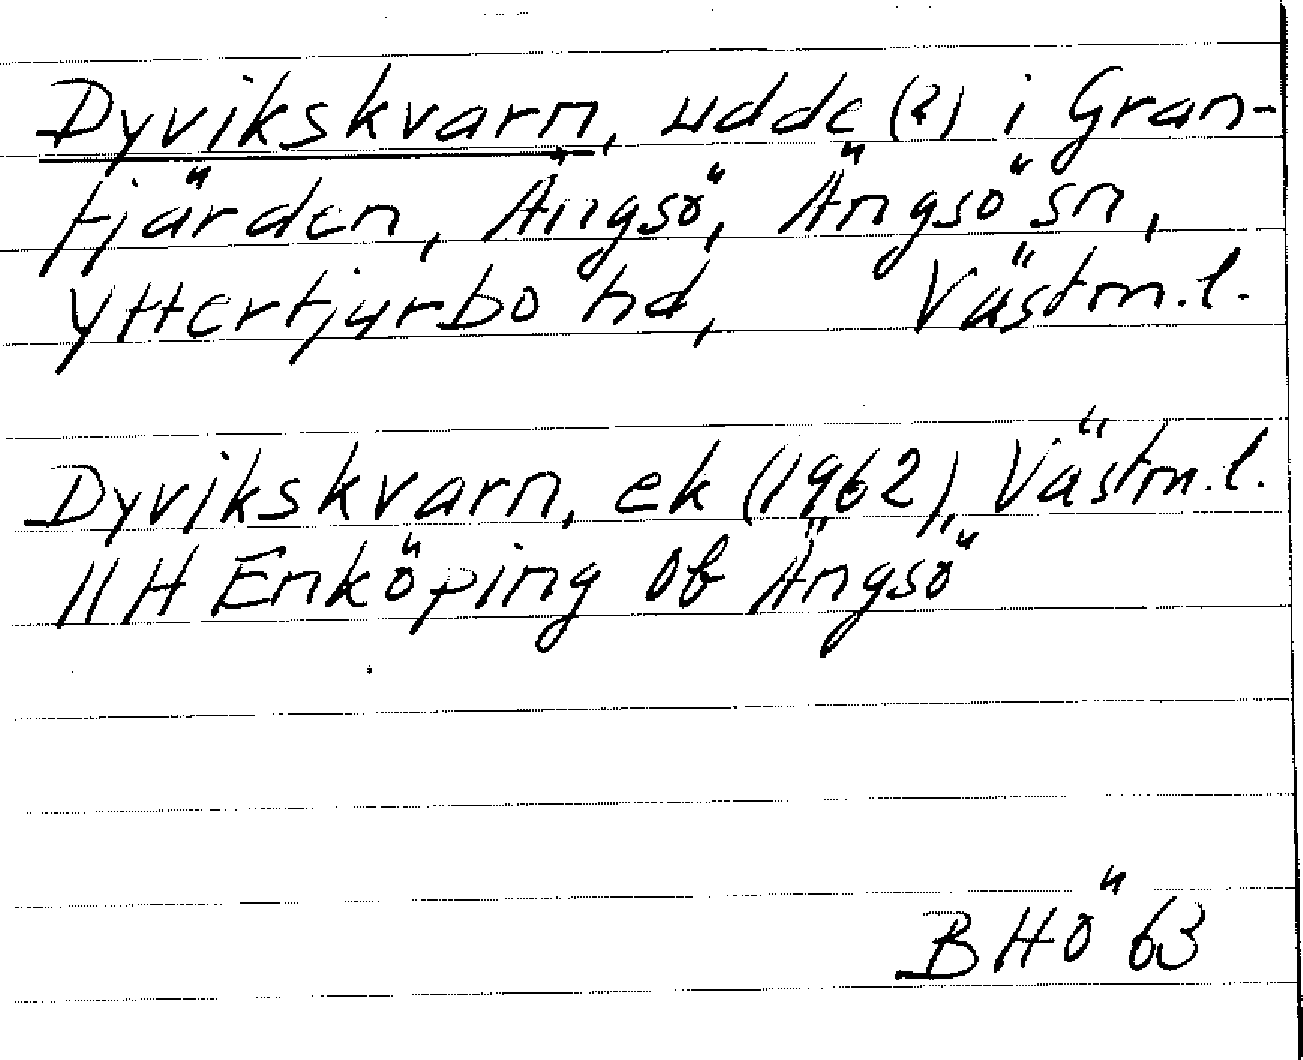 Dyvikskvarn, udde (?) i Gran-
fjärden, Ängsö, Ängsö sn,
Yttertjurbo hd, Västm.l.
Dyvikskvarn, ek (1962), Västm.l.
11H Enköping ob Ängsö
BHÖ 63